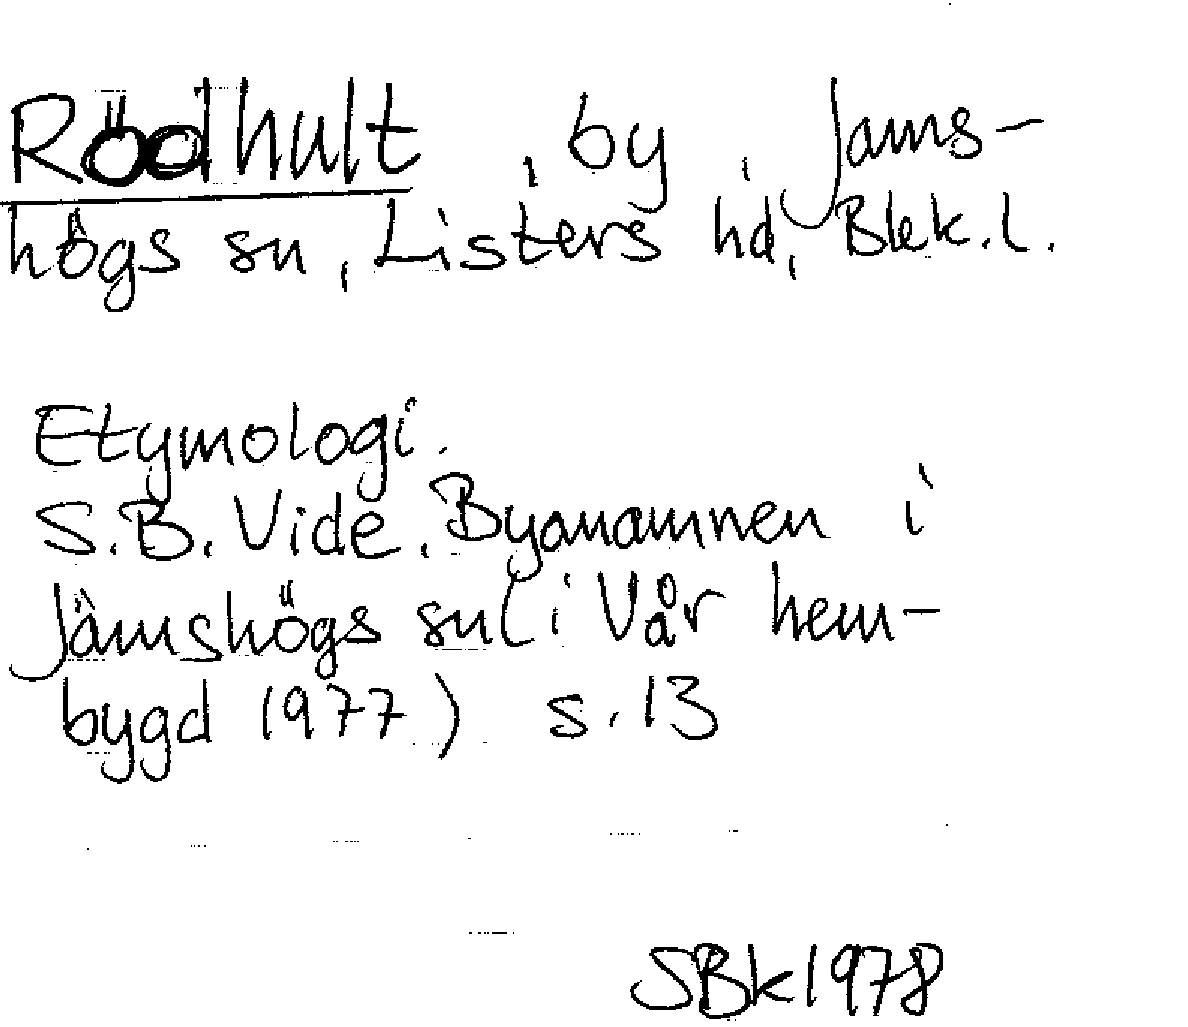 Rödhult, by, Jäms-
högs sn, Listers hd, Blek. l.
Etymologi.
S.B. Vide, Byanamnen i
Jämshögs sn (i Vår hem-
bygd 1977) s. 13
SBk 1978